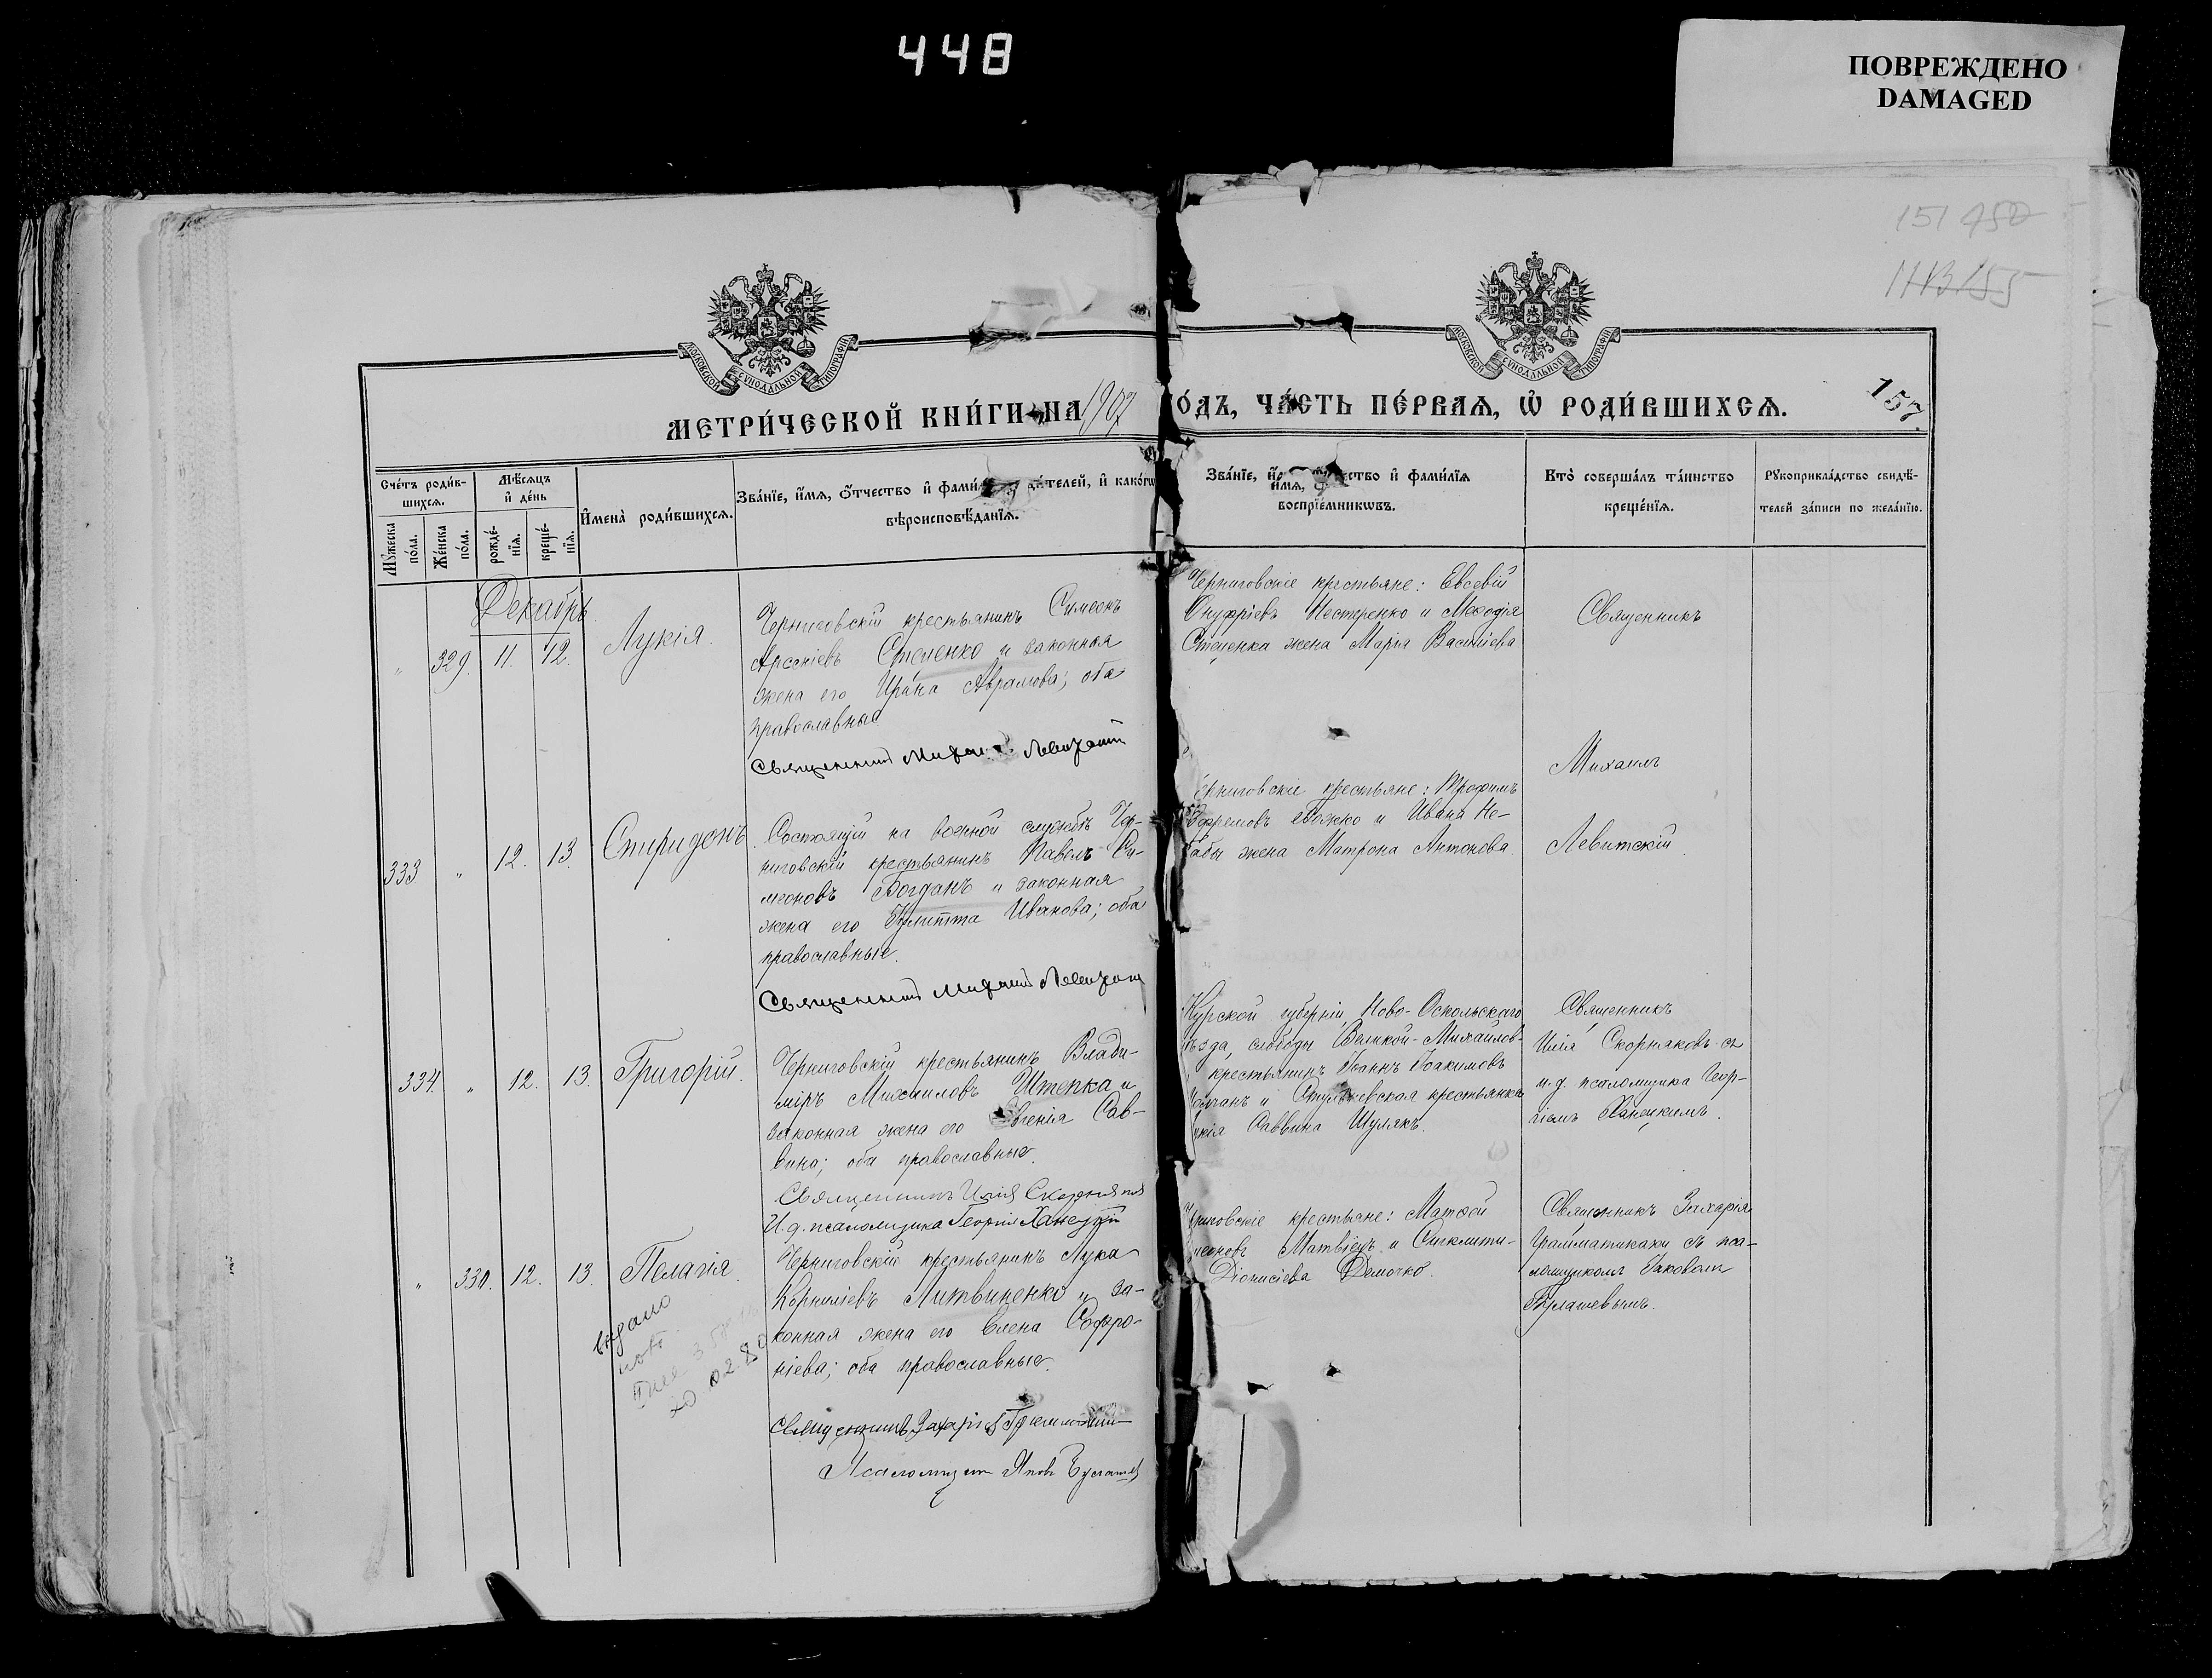 448
ПОВРЕЖДЕНО
DAMAGED
151
МОСКОВСКОЙ СѴНОДАЛЬНОЙ ТИПОГРАФІИ
МОСКОВСКОЙ СѴНОДАЛЬНОЙ ТИПОГРАФІИ
МЕТРИ́ЧЕСКОЙ КНИ́ГИ НА 1907
О́ДЪ, ЧА́СТЬ ПЕ́РВАѦ, Ѡ҆ РОДИ́ВШИХСѦ.
157.
Сче́тъ роди́в-
шихсѧ.
Мꙋ́жеска
по́ла.
Же́нска
по́ла.
Мѣ́сѧцъ
и҆ де́нь
рожде́-
нїѧ.
креще́-
нїѧ.
И҆мена̀ роди́вшихсѧ.
Зва́нїе, и҆́мѧ, ѻ҆́тчество и҆ фами́ роди́телей, и҆ како́гѡ
вѣроисповѣ́данїѧ.
Зва́нїе, и҆́мѧ, ѻ҆́тчество и҆ фами́лїѧ
воспрїе́мникѡвъ.
Кто̀ соверша́лъ та́инство
креще́нїѧ.
Рꙋкоприкла́дство свидѣ́-
телей за́писи по жела́нїю.
Декабрь.
" 329. 11. 12. Лукія.
Черниговскій крестьянинъ Симеонъ
Арсеніевъ Стеценко и законная
жена его Ирина Аврамова; оба
православные
Священникъ Михаилъ Левитскій
Черниговскіе крестьяне: Евсевій
Онуфріевъ Нестеренко и Меѳодія
Стеценка жена Марія Василіева
Священникъ
Михаилъ
Левитскій.
333 " 12. 13. Спиридонъ.
Состоящій на военной службѣ Чер-
ниговскій крестьянинъ Павелъ Си-
меоновъ Богданъ и законная
жена его Іулитта Иванова; оба
православные.
Священникъ Михаилъ Левитскій
ерниговскіе крестьяне: Трофимъ
Ефремовъ Божко и Ивана Не-
абы жена Матрона Антонова.
334. " 12. 13. Григорій.
Черниговскій крестьянинъ Влади-
міръ Михаиловъ Штепка и
законная жена его Евгенія Сав-
вина; оба православные.
Священникъ Илія Скорняковъ
И. д. псаломщика Георгій Ханецкій
Курской губерніи, Ново-Оскольскаго
ѣзда, слободы Великой-Михайлов-
крестьянинъ Іоаннъ Іоакимовъ
и крестьянка
кія Саввина Шулякъ.
Священникъ
Илія Скорняковъ съ
и. д. псаломщика Геор-
гіемъ Ханецкимъ.
" 330. 12. 13. Пелагія.
Черниговскій крестьянинъ Лука
Корниліевъ Литвиненко и за-
конная жена его Елена Софро-
ніева; оба православные.
Священникъ Захарія Грамматикати
Псаломщикъ Яковъ Булашев
ниговскіе крестьяне: Матѳей
меоновъ Матвіецъ и Синклити-
Діонисіева Демочко.
Священникъ Захарія
Грамматикати съ пса-
ломщикомъ Іаковомъ
Булашевымъ.
выдано